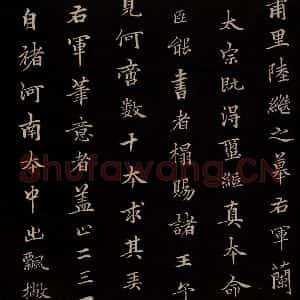 甫里陸繼之摹右軍蘭
太宗既得璽紙真本命
臣能書者搨賜諸王余
見何啻數十本求其美
右軍筆意者蓋止二三
自褚河南本中出飄撇
Shufawang.CN